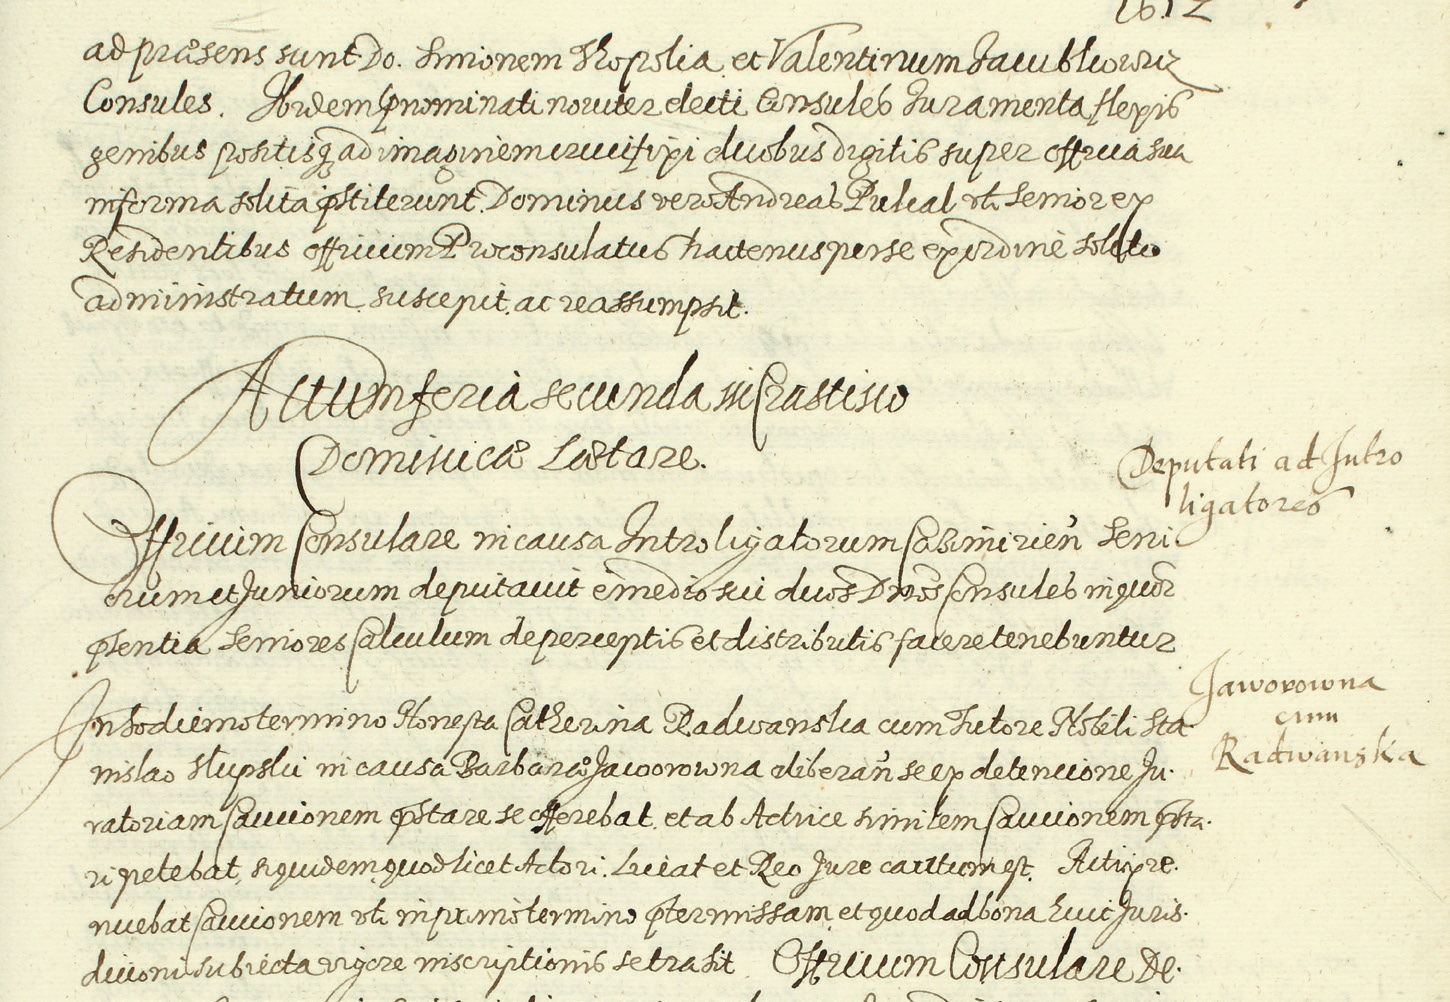 1612
ad præsens sunt Do. Simonem Thopolia et Valentinum Jacubkowicz
Consules. Ibidem pnominati noviter electi Consules Juramenta flexis
genibus positisq ad imaginem crucifixi duobus digitis super officia sua
in forma solita pstiterunt. Dominus vero Andreas Pukal uti Senior ex
Residentibus officium Proconsulatus hactenus per se ex ordine solito
administratum suscepit ac reassumpsit.
Actum feria secunda in Crastino
Dominicæ Lætare.
Officium Consulare in causa Introligatorum Casimirien Seni
orum et Juniorum deputavit e medio sui duos Dnos Consules in quor
pſentia Seniores Calculum de perceptis et distributis facere tenebuntur
Deputati ad Intro
ligatores
In hodierno termino Honesta Catherina Radwanska cum Tutore Nobili Sta
nislao Słupski in causa Barbaræ Jaworowna liberan se ex detencione Ju-
ratoriam Caucionem pstare se offerebat et ab Actrice similem Caucionem psta-
ri petebat, siquidem quod licet Actori liceat et Reo Jure cautum est. Actrix re-
nuebat Caucionem uti in primo termino ptermissam et quod ad bona huic Juris-
diccioni subiecta vigore inscriptionis se trahit Officium Consulare De-
Jaworowna
cum
Radwanska